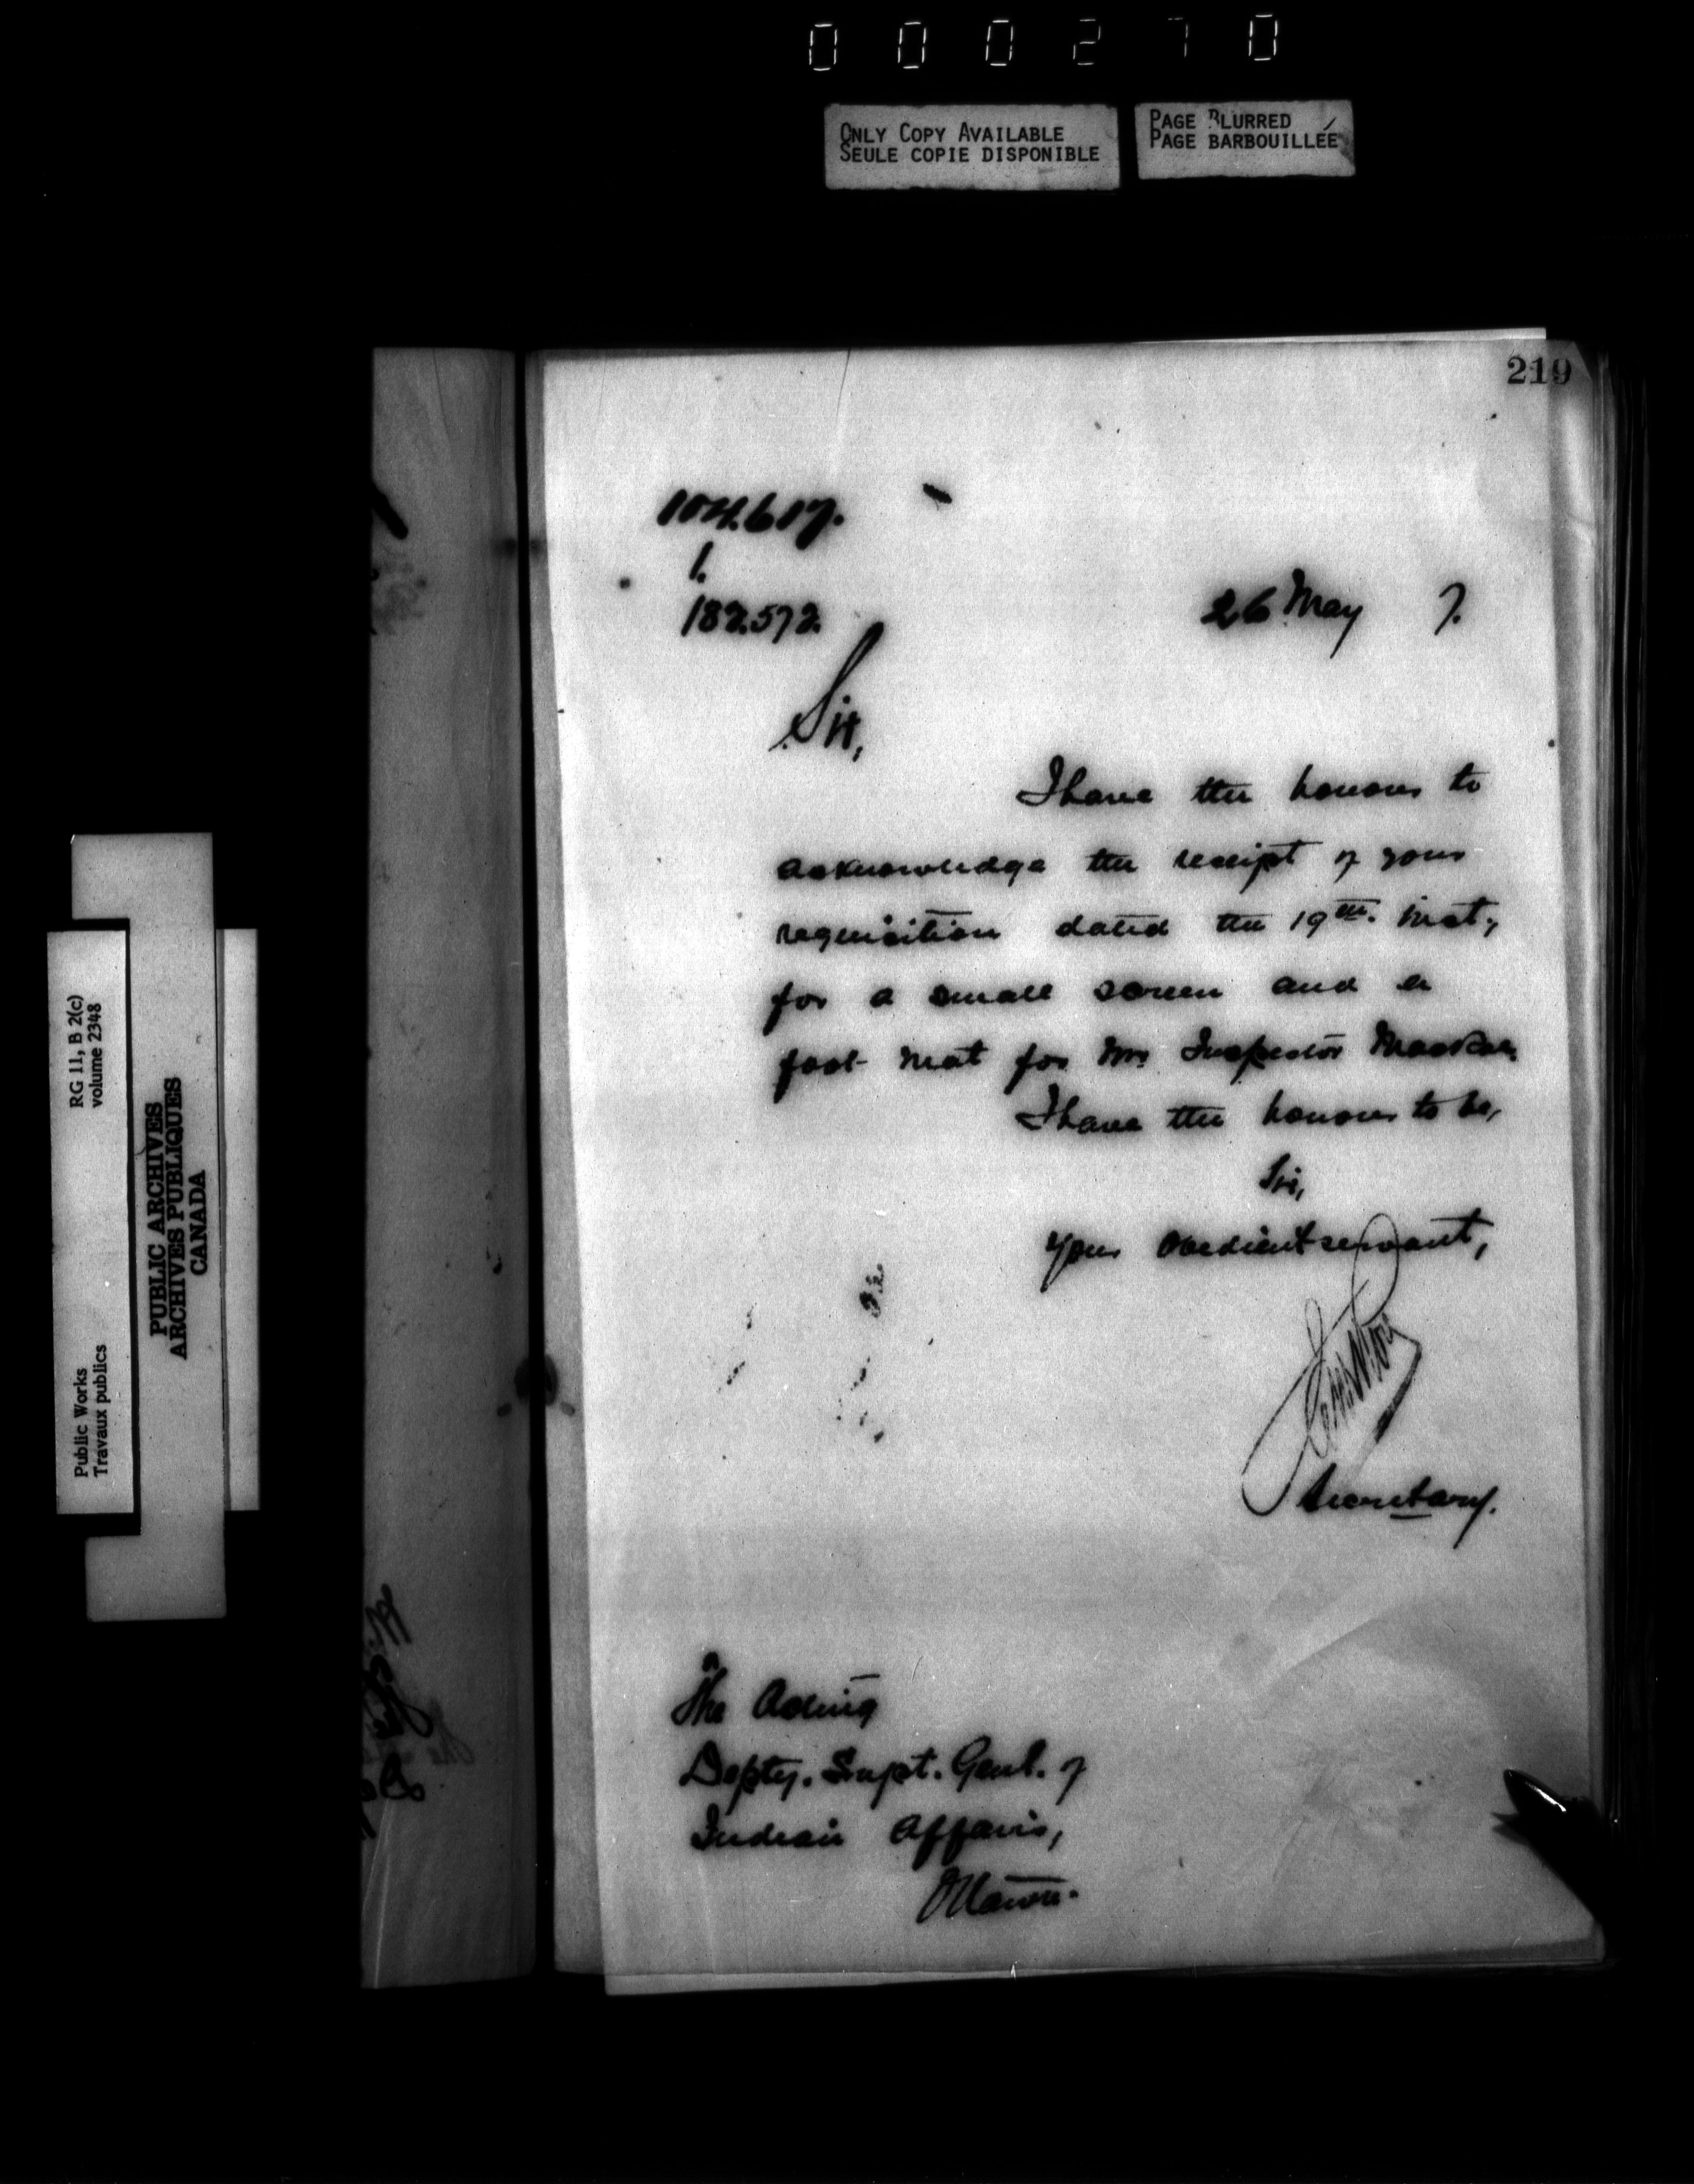 000270
ONLY COPY AVAILABLE
SEULE COPIE DISPONIBLE
PAGE BLURRED
PAGE BARBOUILLÉE
219
1.
182.572.
26 May 7.
Sir,
I have the honour to
acknowledge the receipt of your
requisition dated the 19th. inst,
for a small screen and a
foot mat for Mr Inspector
I have the honour to be,
Sir,
Your obedient servant,
Secretary.
The Acting
Depty. Supt. Genl. of
Indian Affairs,
Ottawa.
RG 11, B 2(c)
volume 2348
Public Works
Travaux publics
PUBLIC ARCHIVES
ARCHIVES PUBLIQUES
CANADA